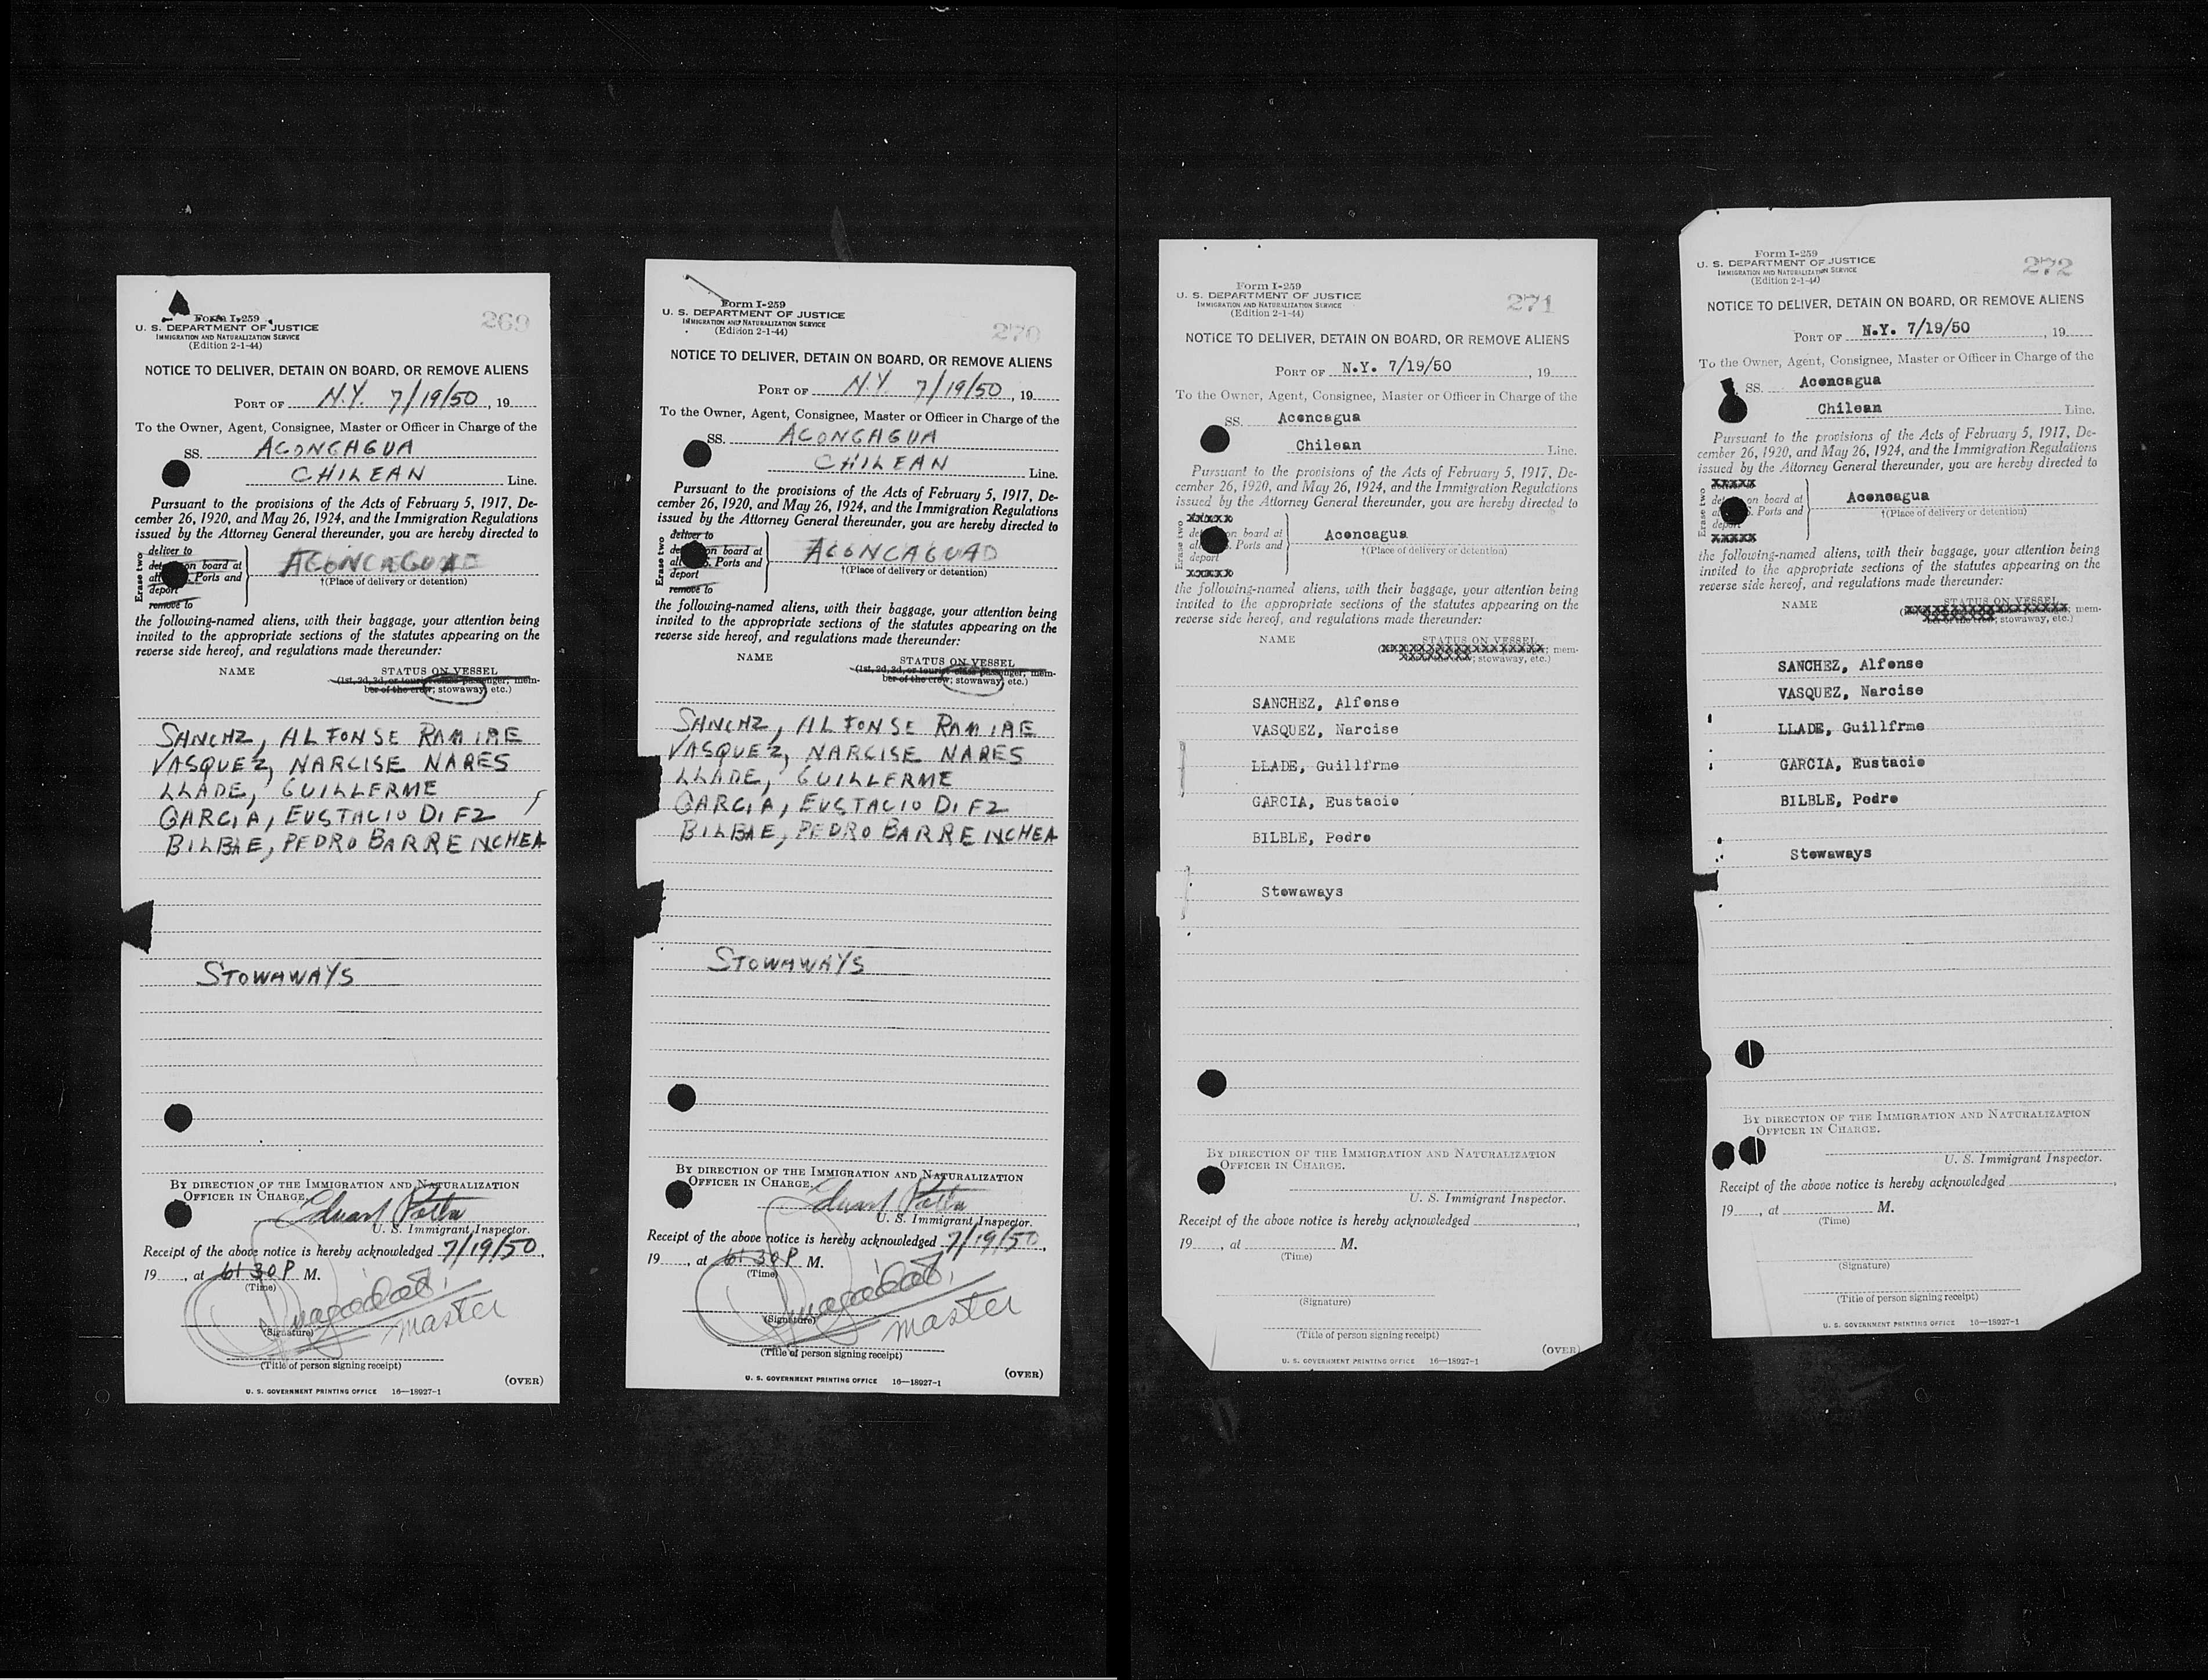 Form I-259
U. S. DEPARTMENT OF JUSTICE
IMMIGRATION AND NATURALIZATION SERVICE
(Edition 2-1-44)
269
NOTICE TO DELIVER, DETAIN ON BOARD, OR REMOVE ALIENS
PORT OF N.Y. 7/19/50, 19
To the Owner, Agent, Consignee, Master or Officer in Charge of the
SS. ACONCAGUA
CHILEAN Line.
Pursuant to the provisions of the Acts of February 5, 1917, De-
cember 26, 1920, and May 26, 1924, and the Immigration Regulations
issued by the Attorney General thereunder, you are hereby directed to
Erase two
deliver to
on board at
Ports and
deport
remove to
ACONCAGUA
†(Place of delivery or detention)
the following-named aliens, with their baggage, your attention being
invited to the appropriate sections of the statutes appearing on the
reverse side hereof, and regulations made thereunder:
NAME STATUS ON VESSEL
(1st, 2d, 3d, or tourist class passenger; mem-
ber of the crew; stowaway, etc.)
SANCHZ, ALFONSE RAMIRE
VASQUEZ, NARCISE NARES
LLADE, GUILLERME
GARCIA, EUSTACIO DIEZ
BILBAE, PEDRO BARRENCHEA
STOWAWAYS
BY DIRECTION OF THE IMMIGRATION AND NATURALIZATION
OFFICER IN CHARGE.
U. S. Immigrant Inspector.
Receipt of the above notice is hereby acknowledged 7/19/50,
19, at 6:30 P M.
(Time)
master
(Signature)
(Title of person signing receipt)
(OVER)
U. S. GOVERNMENT PRINTING OFFICE 16—18927-1
Form I-259
U. S. DEPARTMENT OF JUSTICE
IMMIGRATION AND NATURALIZATION SERVICE
(Edition 2-1-44)
270
NOTICE TO DELIVER, DETAIN ON BOARD, OR REMOVE ALIENS
PORT OF N.Y. 7/19/50, 19
To the Owner, Agent, Consignee, Master or Officer in Charge of the
SS. ACONCAGUA
CHILEAN Line.
Pursuant to the provisions of the Acts of February 5, 1917, De-
cember 26, 1920, and May 26, 1924, and the Immigration Regulations
issued by the Attorney General thereunder, you are hereby directed to
Erase two
deliver to
on board at
Ports and
deport
remove to
ACONCAGUA
†(Place of delivery or detention)
the following-named aliens, with their baggage, your attention being
invited to the appropriate sections of the statutes appearing on the
reverse side hereof, and regulations made thereunder:
NAME STATUS ON VESSEL
(1st, 2d, 3d, or tourist class passenger; mem-
ber of the crew; stowaway, etc.)
SANCHZ, ALFONSE RAMIRE
VASQUEZ, NARCISE NARES
LLADE, GUILLERME
GARCIA, EUSTACIO DIEZ
BILBAE, PEDRO BARRENCHEA
STOWAWAYS
BY DIRECTION OF THE IMMIGRATION AND NATURALIZATION
OFFICER IN CHARGE.
U. S. Immigrant Inspector.
Receipt of the above notice is hereby acknowledged 7/19/50,
19, at 6:30 P M.
(Time)
master
(Signature)
(Title of person signing receipt)
(OVER)
U. S. GOVERNMENT PRINTING OFFICE 16—18927-1
Form I-259
U. S. DEPARTMENT OF JUSTICE
IMMIGRATION AND NATURALIZATION SERVICE
(Edition 2-1-44)
271
NOTICE TO DELIVER, DETAIN ON BOARD, OR REMOVE ALIENS
PORT OF N.Y. 7/19/50, 19
To the Owner, Agent, Consignee, Master or Officer in Charge of the
SS. Aconcagua
Chilean Line.
Pursuant to the provisions of the Acts of February 5, 1917, De-
cember 26, 1920, and May 26, 1924, and the Immigration Regulations
issued by the Attorney General thereunder, you are hereby directed to
Erase two
xxxxx
on board at
Ports and
deport
xxxxx
Aconcagua
†(Place of delivery or detention)
the following-named aliens, with their baggage, your attention being
invited to the appropriate sections of the statutes appearing on the
reverse side hereof, and regulations made thereunder:
NAME STATUS ON VESSEL
mem-
stowaway, etc.)
SANCHEZ, Alfonse
VASQUEZ, Narcise
LLADE, Guillfrme
GARCIA, Eustacio
BILBLE, Pedro
Stowaways
BY DIRECTION OF THE IMMIGRATION AND NATURALIZATION
OFFICER IN CHARGE.
U. S. Immigrant Inspector.
Receipt of the above notice is hereby acknowledged,
19, at M.
(Time)
(Signature)
(Title of person signing receipt)
(OVER)
U. S. GOVERNMENT PRINTING OFFICE 16—18927-1
Form I-259
U. S. DEPARTMENT OF JUSTICE
IMMIGRATION AND NATURALIZATION SERVICE
(Edition 2-1-44)
272
NOTICE TO DELIVER, DETAIN ON BOARD, OR REMOVE ALIENS
PORT OF N.Y. 7/19/50, 19
To the Owner, Agent, Consignee, Master or Officer in Charge of the
SS. Aconcagua
Chilean Line.
Pursuant to the provisions of the Acts of February 5, 1917, De-
cember 26, 1920, and May 26, 1924, and the Immigration Regulations
issued by the Attorney General thereunder, you are hereby directed to
Erase two
xxxxx
on board at
Ports and
deport
xxxxx
Aconcagua
†(Place of delivery or detention)
the following-named aliens, with their baggage, your attention being
invited to the appropriate sections of the statutes appearing on the
reverse side hereof, and regulations made thereunder:
NAME STATUS ON VESSEL
mem-
stowaway, etc.)
SANCHEZ, Alfonse
VASQUEZ, Narcise
LLADE, Guillfrme
GARCIA, Eustacio
BILBLE, Pedro
Stowaways
BY DIRECTION OF THE IMMIGRATION AND NATURALIZATION
OFFICER IN CHARGE.
U. S. Immigrant Inspector.
Receipt of the above notice is hereby acknowledged,
19, at M.
(Time)
(Signature)
(Title of person signing receipt)
U. S. GOVERNMENT PRINTING OFFICE 16—18927-1